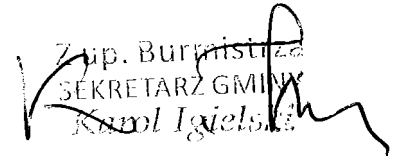 Z up. Burmistrza
SEKRETARZ GMINY
Karol Igielski